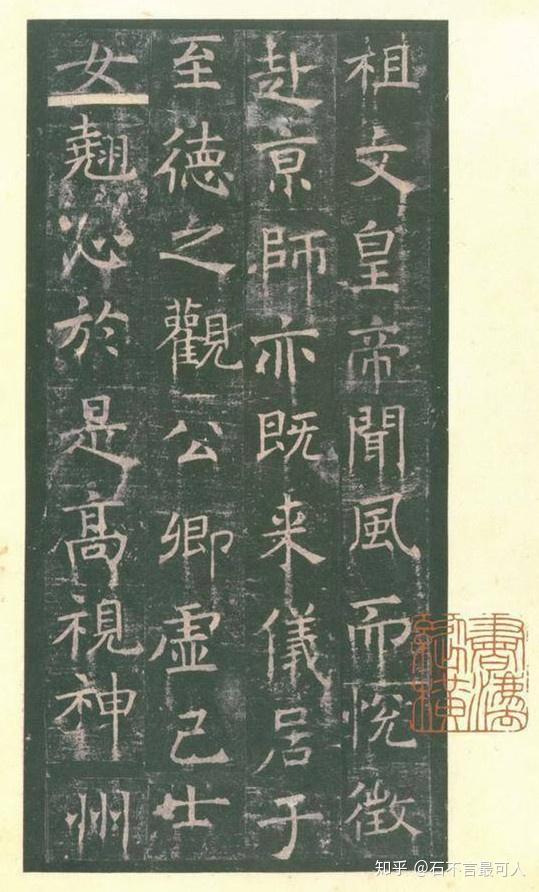 祖文皇帝聞風而悅徵
赴亰師亦既来儀居于
至德之觀公卿虚己士
女翹心於是髙視神州
知乎 @石不言最可人